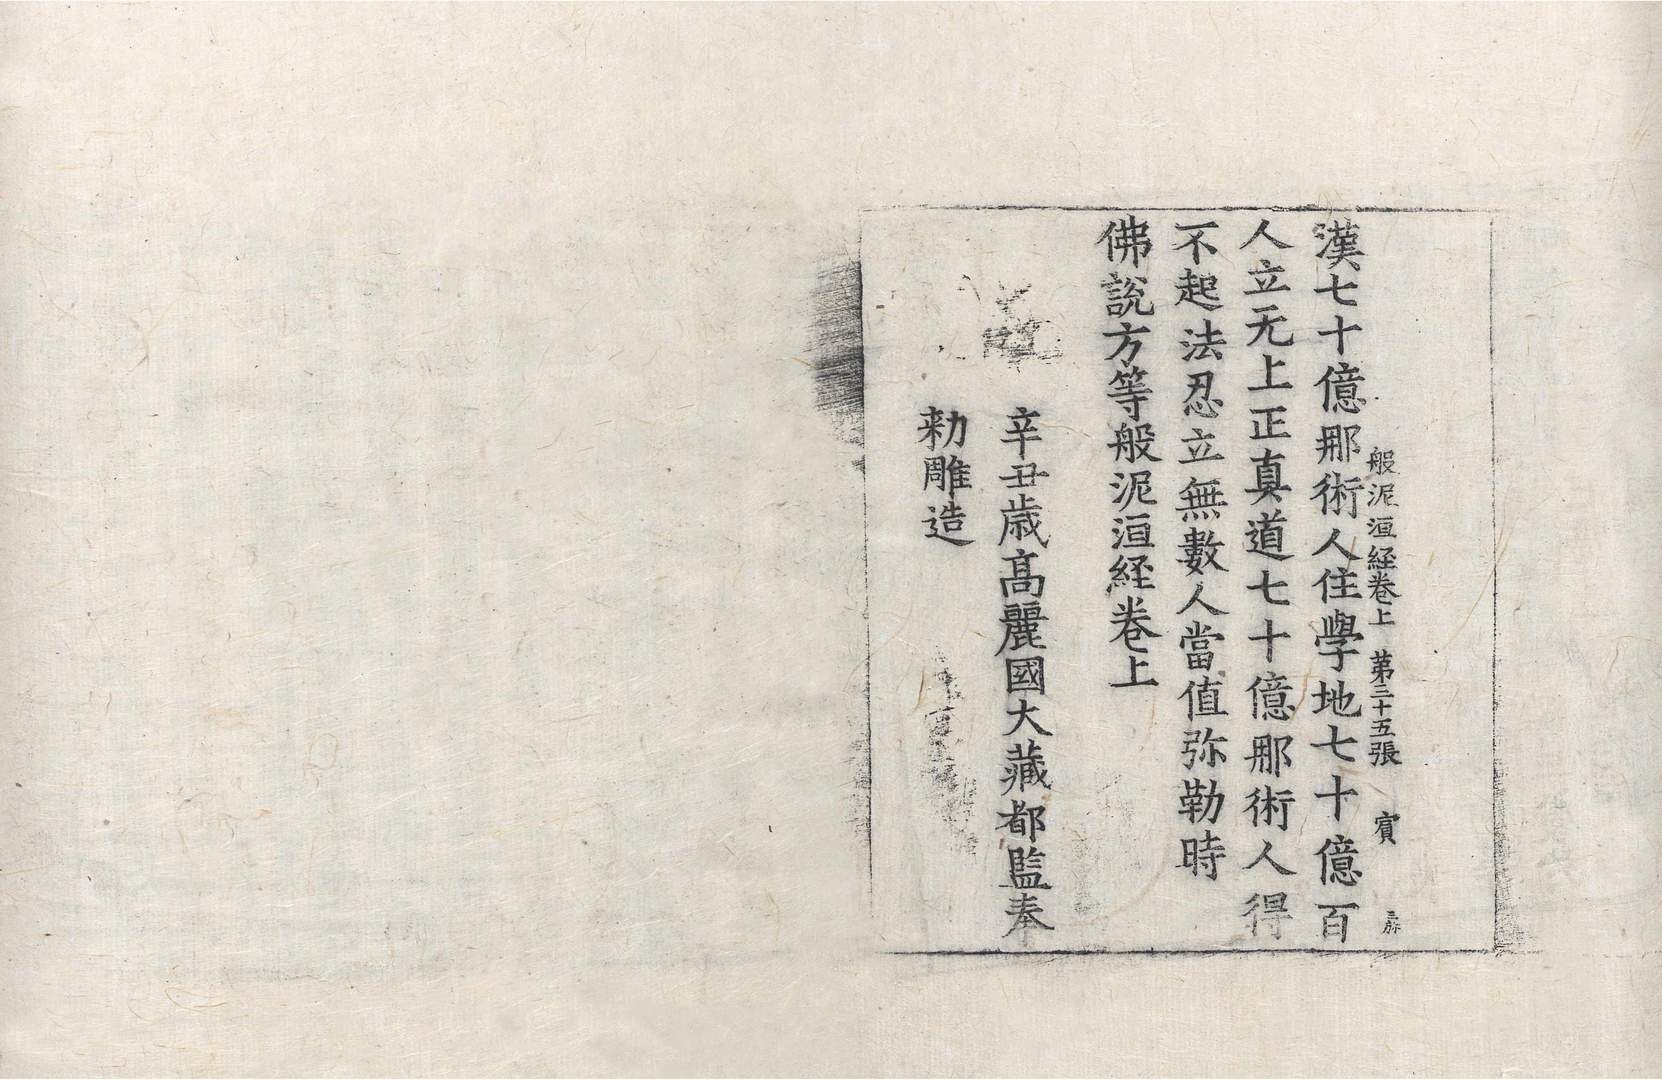 般泥洹経卷上 第三十五張 賓
漢七十億那術人住學地七十億百
人立无上正真道七十億那術人得
不起法忍立無數人當值弥勒時
佛說方等般泥洹経卷上
辛丑歳髙麗國大藏都監奉
勑雕造